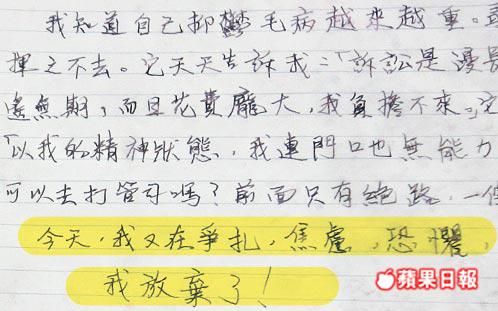 我知道自己抑鬱毛病越來越重。
揮之不去。它天天告訴我:「訴訟是漫長
遙無期,而且花費龐大,我負擔不來。」它
「以我的精神狀態,我連門口也無能力
可以去打官司嗎?前面只有絕路,一
今天,我又在爭扎,焦慮,恐懼,
我放棄了!
蘋果日報